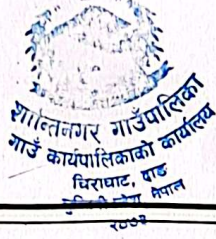 शान्तिनगर गाउँपालिका
गाउँ कार्यपालिकाको कार्यालय
चिराघाट, दाङ
नेपाल
२०७३